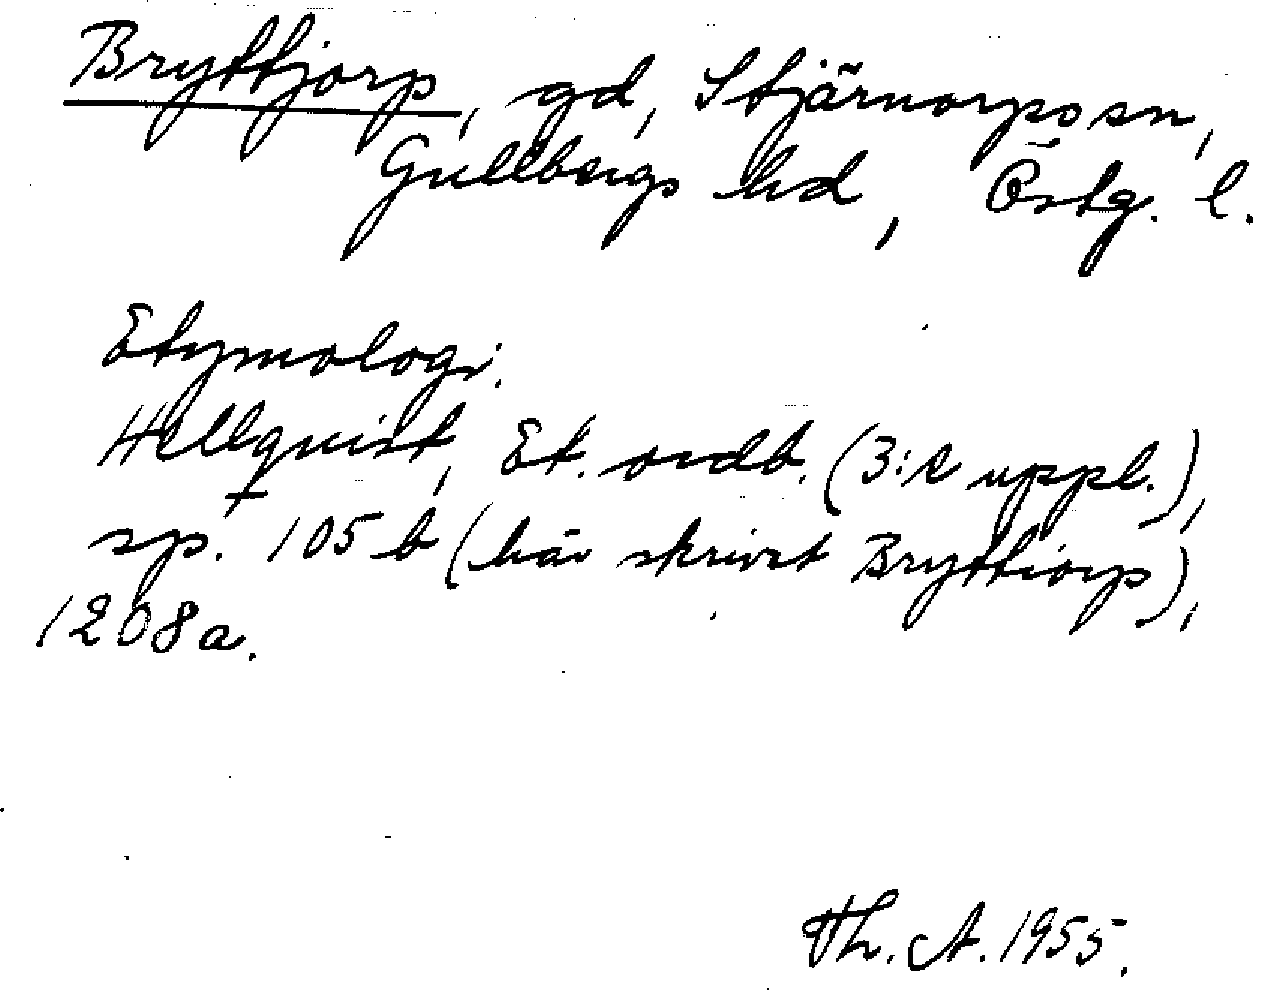 Bryttjorp, gd, Stjärnorps sn,
Gullbergs hd, Östg. l.
Etymologi.
Hellquist, Et. ordb. (3:e uppl.),
sp. 105 b (här skrivet Bryttiorp),
1208a.
Th. A. 1955.